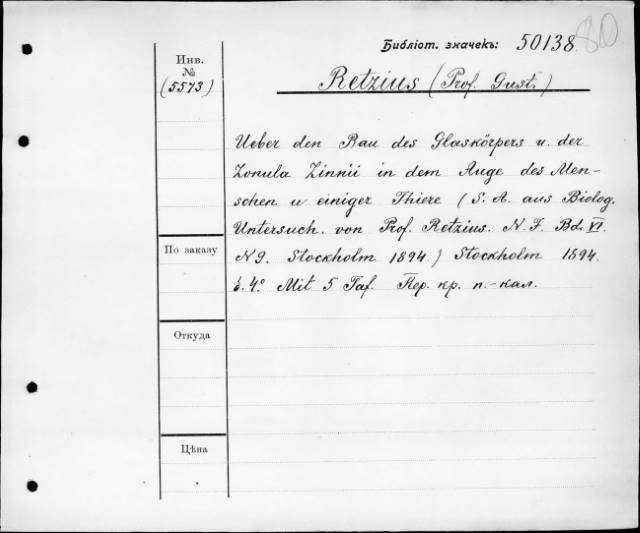 Библіот. значекъ: 50138 80
Инв.
№
(5573)
Retzius (Prof. Gust.)
Ueber den Bau des Glaskörpers u. der
Zonula Zinnii in dem Auge des Men-
schen u einiger Thiere (S. A. aus Biolog.
Untersuch. von Prof. Retzius. N. F. Bd. VI.
N 9. Stockholm 1894.) Stockholm 1894.
4° Mit 5 Taf. Пер. кр. п.-кал.
По заказу
Откуда
Цѣна